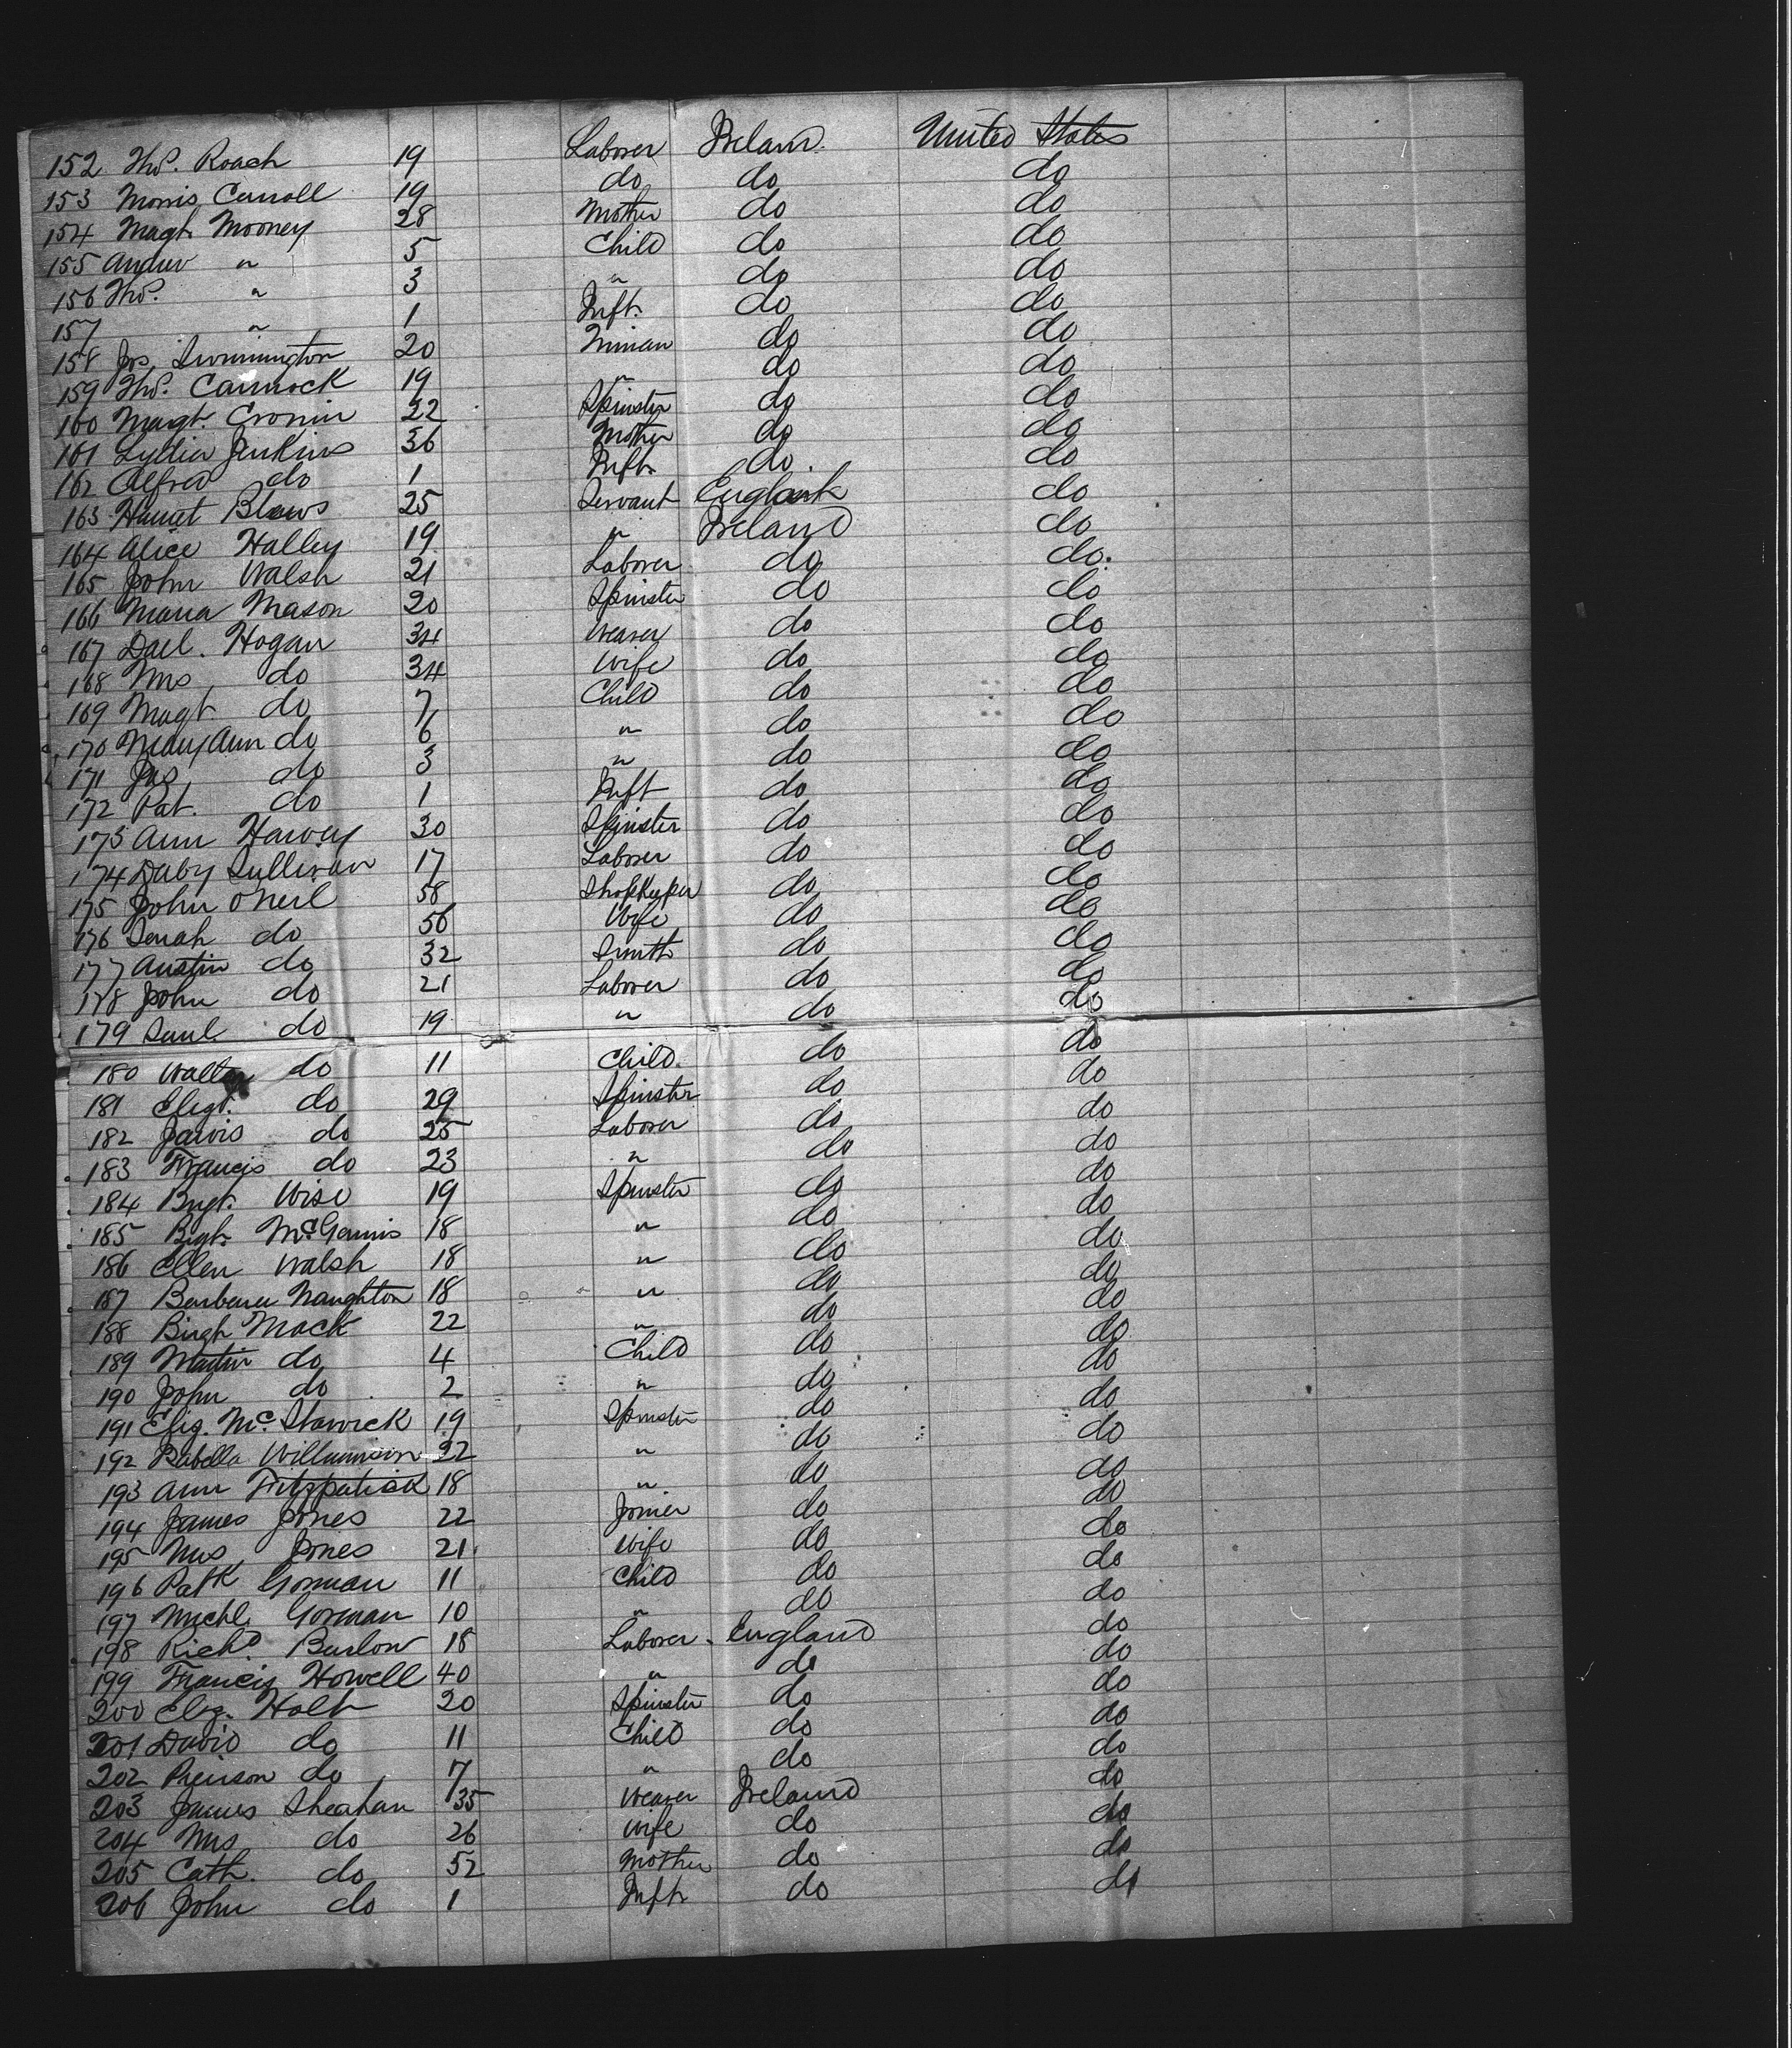 152 Thos. Roach 19 Laborer Ireland United States
153 Morris Carroll 19 do do do
154 Magt. Mooney 28 Mother do do
155 Andrew " 5 Child do do
156 Thos. " 3 " do do
157 " 1 Inft. do do
158 Jos. 20 do do
159 Thos. Carmock 19 " do do
160 Margt. Cronin 22 Spinster do do
161 Lydia Jenkins 36 Mother do do
162 Alfred do 1 Inft. do do
163 Harriet Blows 25 Servant do
164 Alice Halley 19 " Ireland do
165 John Walsh 21 Laborer do do
166 Maria Mason 20 Spinster do do
167 Dael. Hogan 34 Weaver do do
168 Mrs do 34 Wife do do
169 Magt. do 7 Child do do
170 Mary Ann do 6 " do do
171 Jas do 3 " do do
172 Pat. do 1 Inft do do
173 Ann Harvey 30 Spinster do do
174 Daby Sullivan 17 Laborer do do
175 John O'Neil 58 Shopkeeper do do
176 do 56 Wife do do
177 Austin do 32 Smith do do
178 John do 21 Laborer do do
179 Saml. do 19 " do do
180 Walter do 11 Child do do
181 Elizt. do 29 Spinster do do
182 Jarvis do 25 Laborer do do
183 Francis do 23 " do do
184 Brgt. Wise 19 Spinster do do
185 Bigt. McGannis 18 " do do
186 Ellen Walsh 18 " do do
187 Barbara Naughton 18 " do do
188 Birgh Mack 22 " do do
189 Martin do 4 Child do do
190 John do 2 " do do
191 Eliz. Mc 19 Spinster do do
192 Isabella Williamson 22 " do do
193 Ann Fitzpatrick 18 " do do
194 James Jones 22 Joiner do do
195 Mrs Jones 21 Wife do do
196 Patk Gorman 11 Child do do
197 Michl. Gorman 10 " do do
198 Richd. Barlow 18 Laborer England do
199 Francis Howell 40 " do do
200 Eliz. Holt 20 Spinster do do
201 David do 11 Child do do
202 Pierson do 7 " do do
203 James Sheahan 35 Weaver Ireland do
204 Mrs do 26 Wife do do
205 Cath. do 52 Mother do do
206 John do 1 Inft. do do